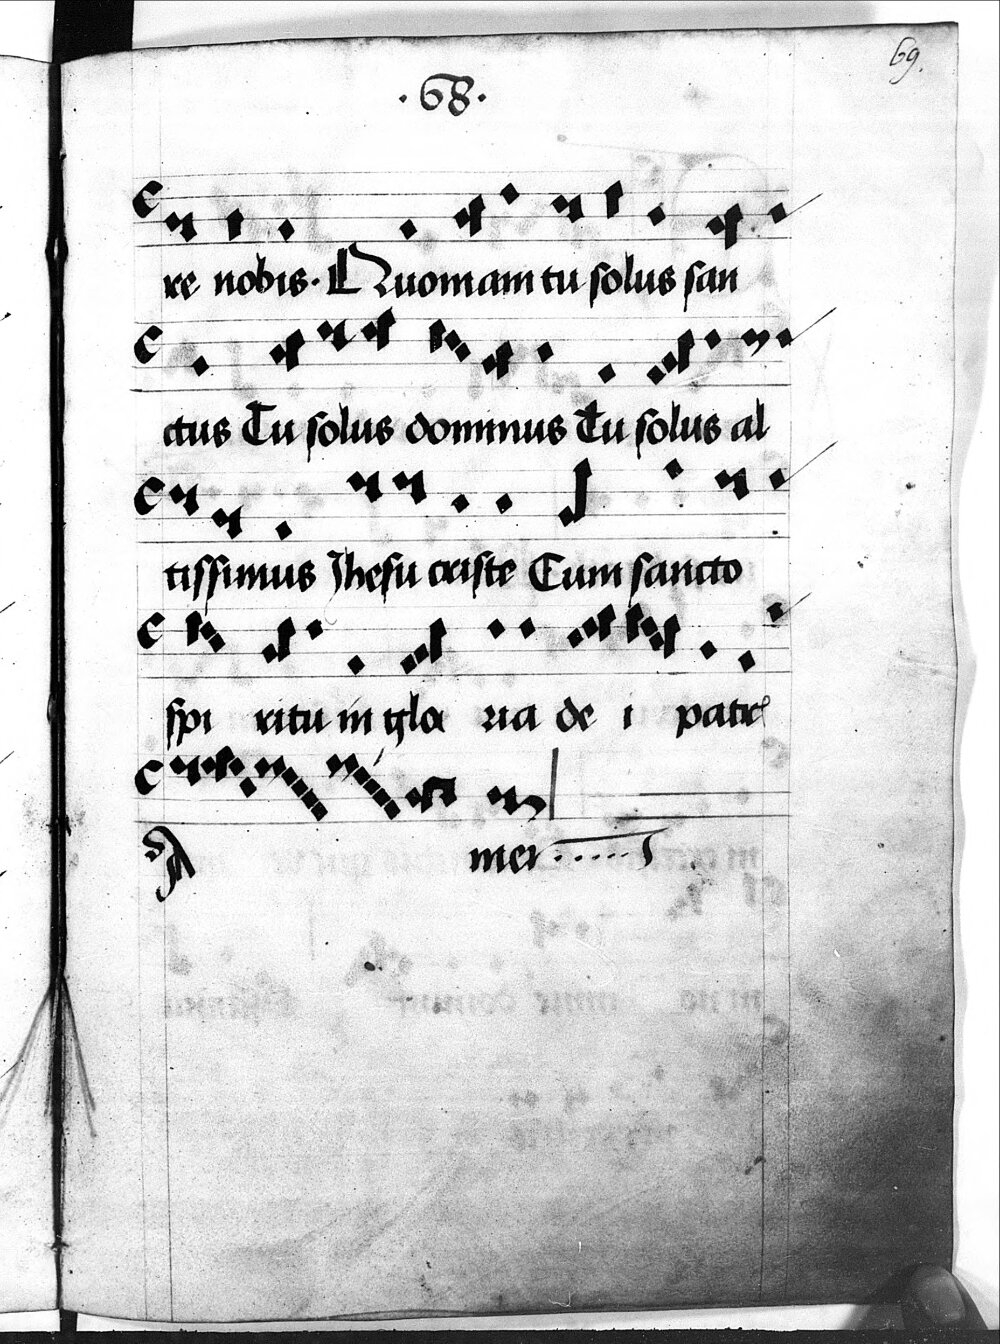 69.
·68·
re nobis· Quoniam tu solus san
ctus Tu solus dominus Tu solus al
tissimus Jhesu criste Cum sancto
spi ritu in glo ria de i patris
A men